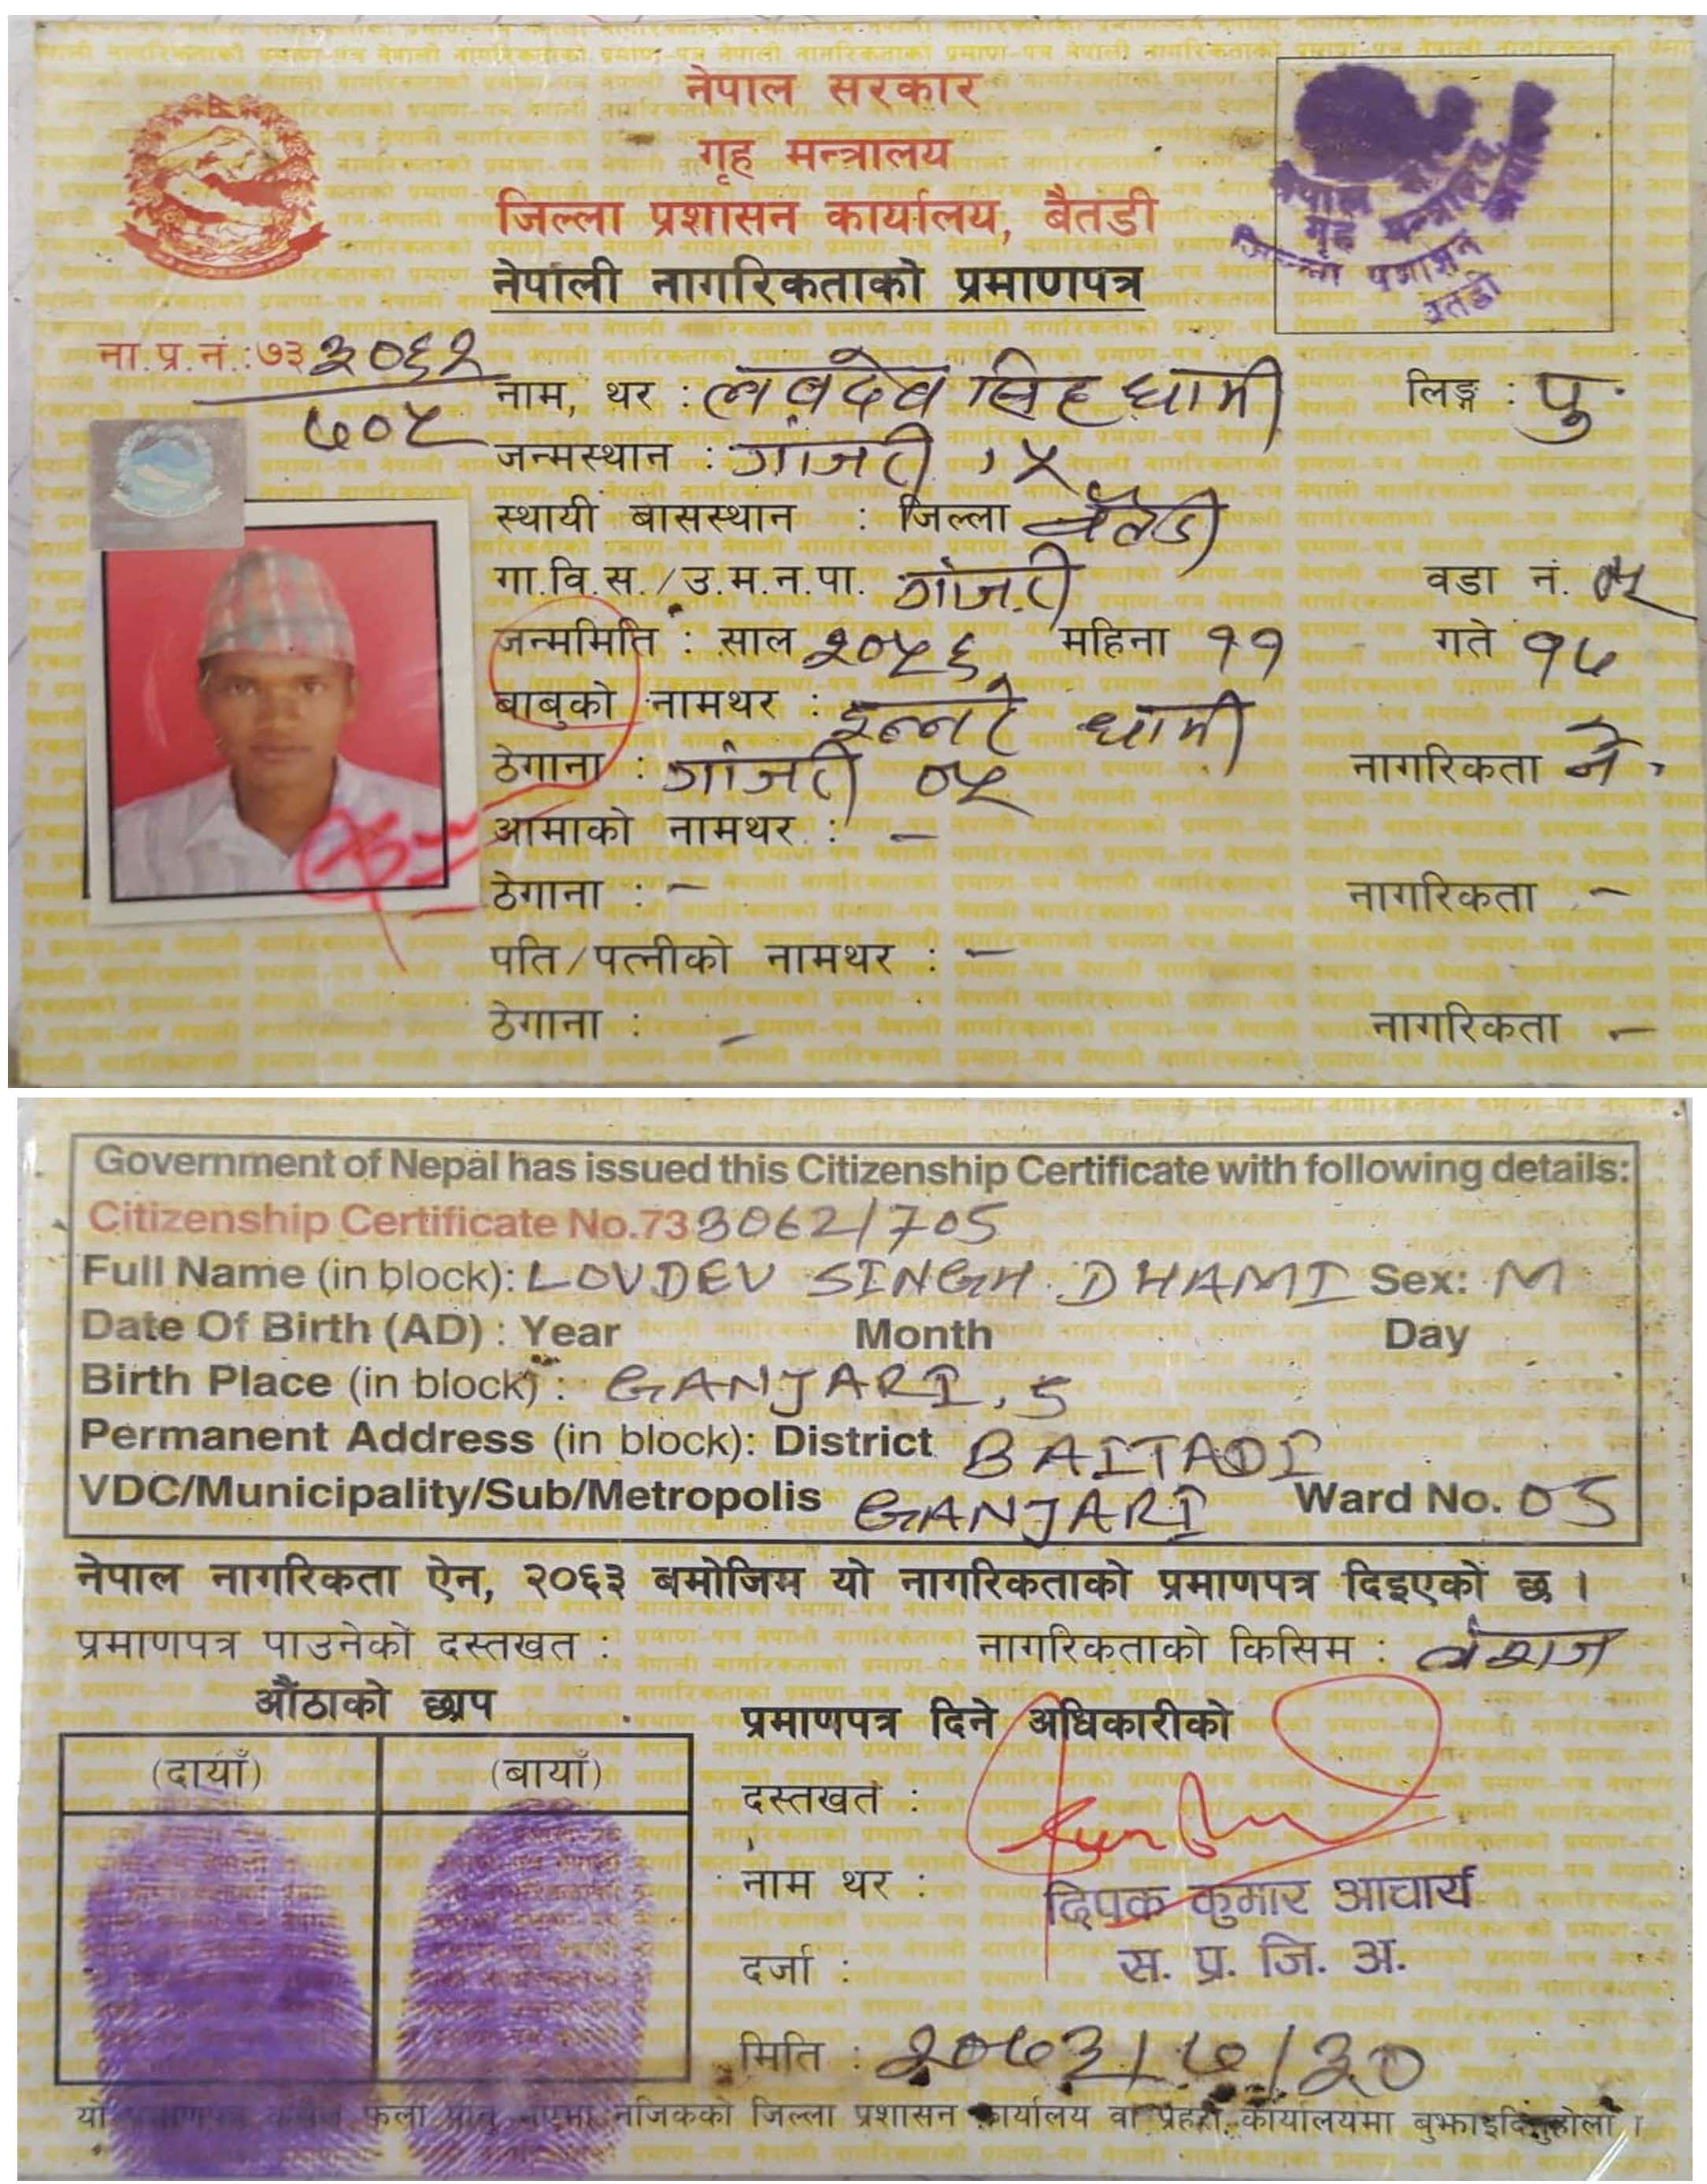 नेपाल सरकार
गृह मन्त्रालय
जिल्ला प्रशासन कार्यालय, बैतडी
नेपाली नागरिकताको प्रमाणपत्र
ना.प्र.नं.:७३ ३०६२/७०५
नाम, थर : लबदेब सिंह धामी लिङ्ग : पु.
जन्मस्थान : गांजरी, ५
स्थायी बासस्थान : जिल्ला बैतडी
गा.वि.स./उ.म.न.पा. गांजरी वडा नं. ०५
जन्ममिति : साल २०५६ महिना ११ गते १७
बाबुको नामथर : धामी
ठेगाना : गांजरी ०५ नागरिकता ने.
आमाको नामथर : -
ठेगाना : - नागरिकता -
पति/पत्नीको नामथर : -
ठेगाना : - नागरिकता -
नेपाल
गृह मन्त्रालय
Government of Nepal has issued this Citizenship Certificate with following details:
Citizenship Certificate No.73 3062/705
Full Name (in block): LOVDEV SINGH DHAMI Sex: M
Date Of Birth (AD) : Year Month Day
Birth Place (in block) : GANJARI, 5
Permanent Address (in block): District BAITADI
VDC/Municipality/Sub/Metropolis GANJARI Ward No. 05
नेपाल नागरिकता ऐन, २०६३ बमोजिम यो नागरिकताको प्रमाणपत्र दिइएको छ ।
प्रमाणपत्र पाउनेको दस्तखत : नागरिकताको किसिम : वंशज
औंठाको छाप
(दायाँ) (बायाँ)
प्रमाणपत्र दिने अधिकारीको
दस्तखत :
नाम थर : दिपक कुमार आचार्य
दर्जा : स. प्र. जि. अ.
मिति : २०७३/७/३०
यो फेला नजिकको जिल्ला प्रशासन कार्यालय वा प्रहरी कार्यालयमा बुझाइदिनुहोला ।